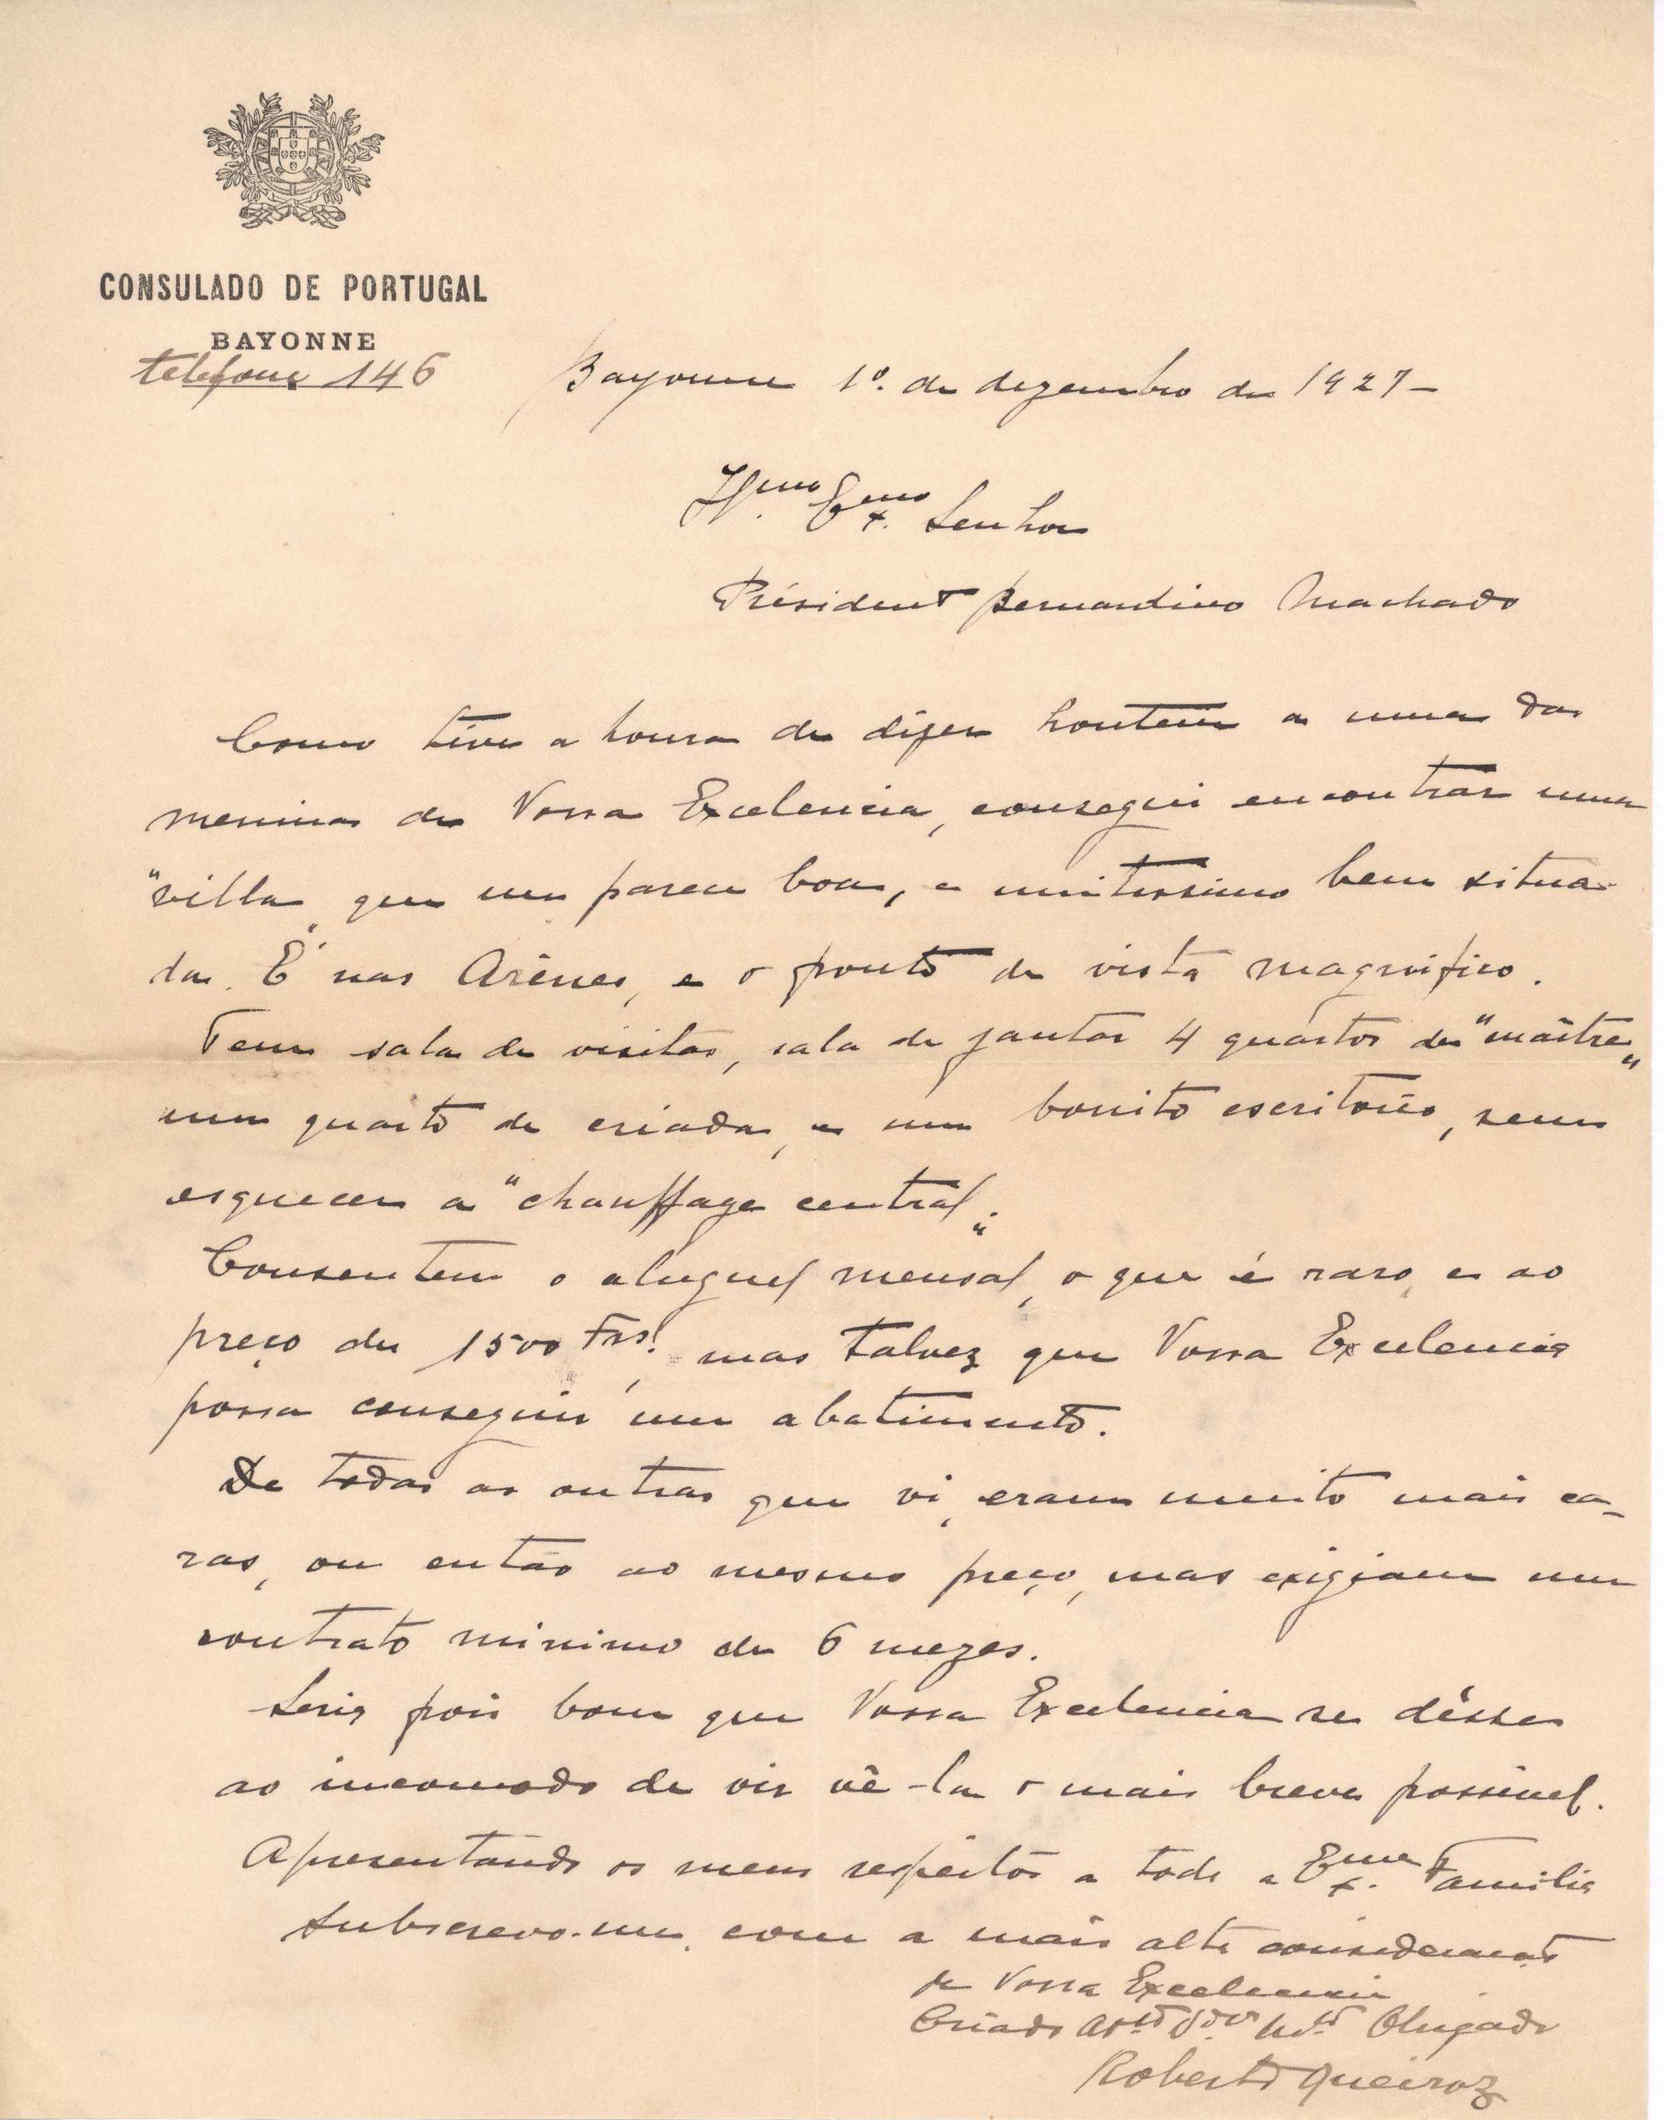 CONSULADO DE PORTUGAL
BAYONNE
telefone 146
Bayonne 1º. de dezembro de 1927-
Ill.mo Ex.mo Senhor
Président Bernardino Machado
Como tive a honra de dizer hontem a uma das
meninas de Vossa Excelencia, consegui encontrar uma
"villa" que me parece boa, e muitissimo bem situa-
da. É nas Arènes, e o ponto de vista magnifico.
Tem sala de visitas, sala de jantar 4 quartos de "maître"
um quarto de criada, e um bonito escritorio, sem
esquecer a "chauffage central".
Consentem o aluguel mensal, o que é raro, e ao
preço de 1500 Frs., mas talvez que Vossa Excelencia
possa conseguir um abatimento.
De todas as outras que vi, eram muito mais ca-
ras, ou então ao mesmo preço, mas exigiam um
contrato minimo de 6 mezes.
Seria pois bom que Vossa Excelencia se désse
ao incomodo de vir vê-la o mais breve possivel.
Apresentando os meus respeitos a toda a Ex.ma Familia
Subscrevo-me, com a mais alta consideração
de Vossa Excelencia
Criado At.to V.dor M.to Obrigado
Roberto Queiroz